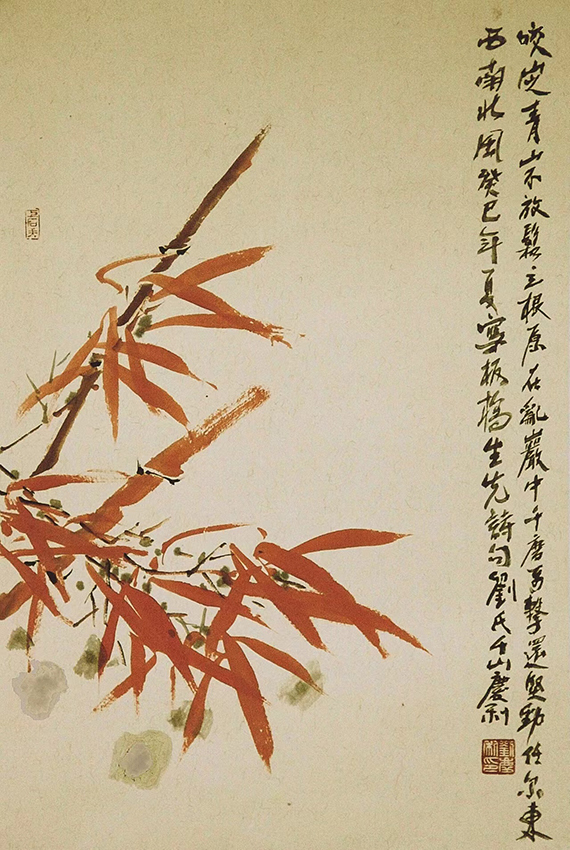 咬定青山不放鬆立根原在亂巖中千磨万擊還堅勁任尔東
西南北風癸巳年夏寫板橋生先詩句劉氏千山慶利
劉慶利印